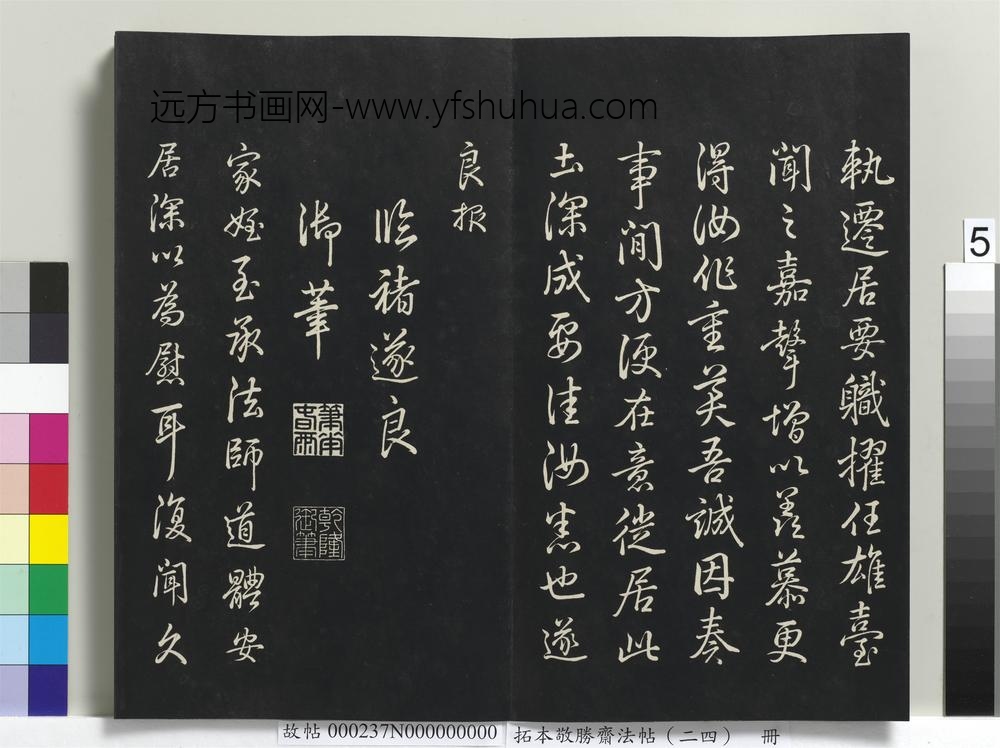 執遷居要職擢任雄臺
聞之嘉聲增以羨慕更
得汝作重美吾誠因奏
事間方便在意從居此
土深成要佳汝悉也遂
良報
臨褚遂良
御筆
乾隆御筆
家姪至承法師道體安
居深以為慰耳復聞久
远方书画网-www.yfshuhua.com
5
故帖 000237N000000000
拓本敬勝齋法帖（二四） 冊